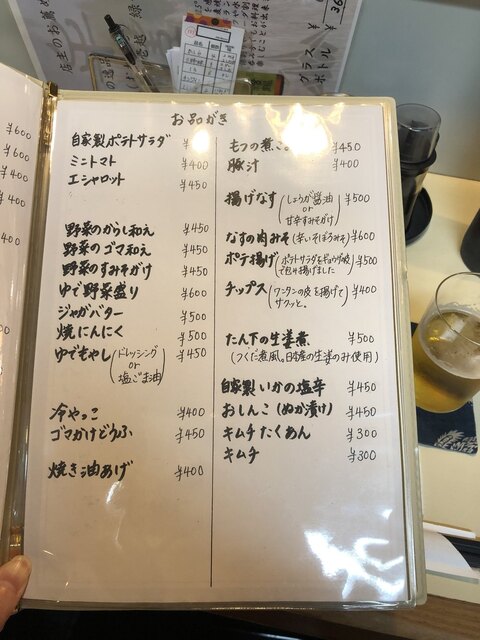 お品がき
自家製ポテトサラダ ¥
ミニトマト ¥400
エシャロット ¥450
野菜のからし和え ¥450
野菜のゴマ和え ¥450
野菜のすみそがけ ¥450
ゆで野菜盛り ¥600
ジャガバター ¥500
焼にんにく ¥500
ゆでもやし (ドレッシング or 塩ごま油) ¥450
冷やっこ ¥400
ゴマかけどうふ ¥450
焼き油あげ ¥400
もつの煮こ ¥450
豚汁 ¥400
揚げなす (しょうが醤油 or 甘辛すみそがけ) ¥500
なすの肉みそ (辛いそぼろみそ) ¥600
ポテ揚げ (ポテトサラダをギョウザの皮で包み揚げました) ¥500
チップス (ワンタンの皮を揚げてサクッと。) ¥400
たん下の生姜煮 ¥500
(つくだ煮風。日本産の生姜のみ使用)
自家製いかの塩辛 ¥450
おしんこ (ぬか漬け) ¥450
キムチたくあん ¥300
キムチ ¥300
¥600
¥600
¥400
¥400
400
店主のお薦め
グラス ¥
ボトル ¥